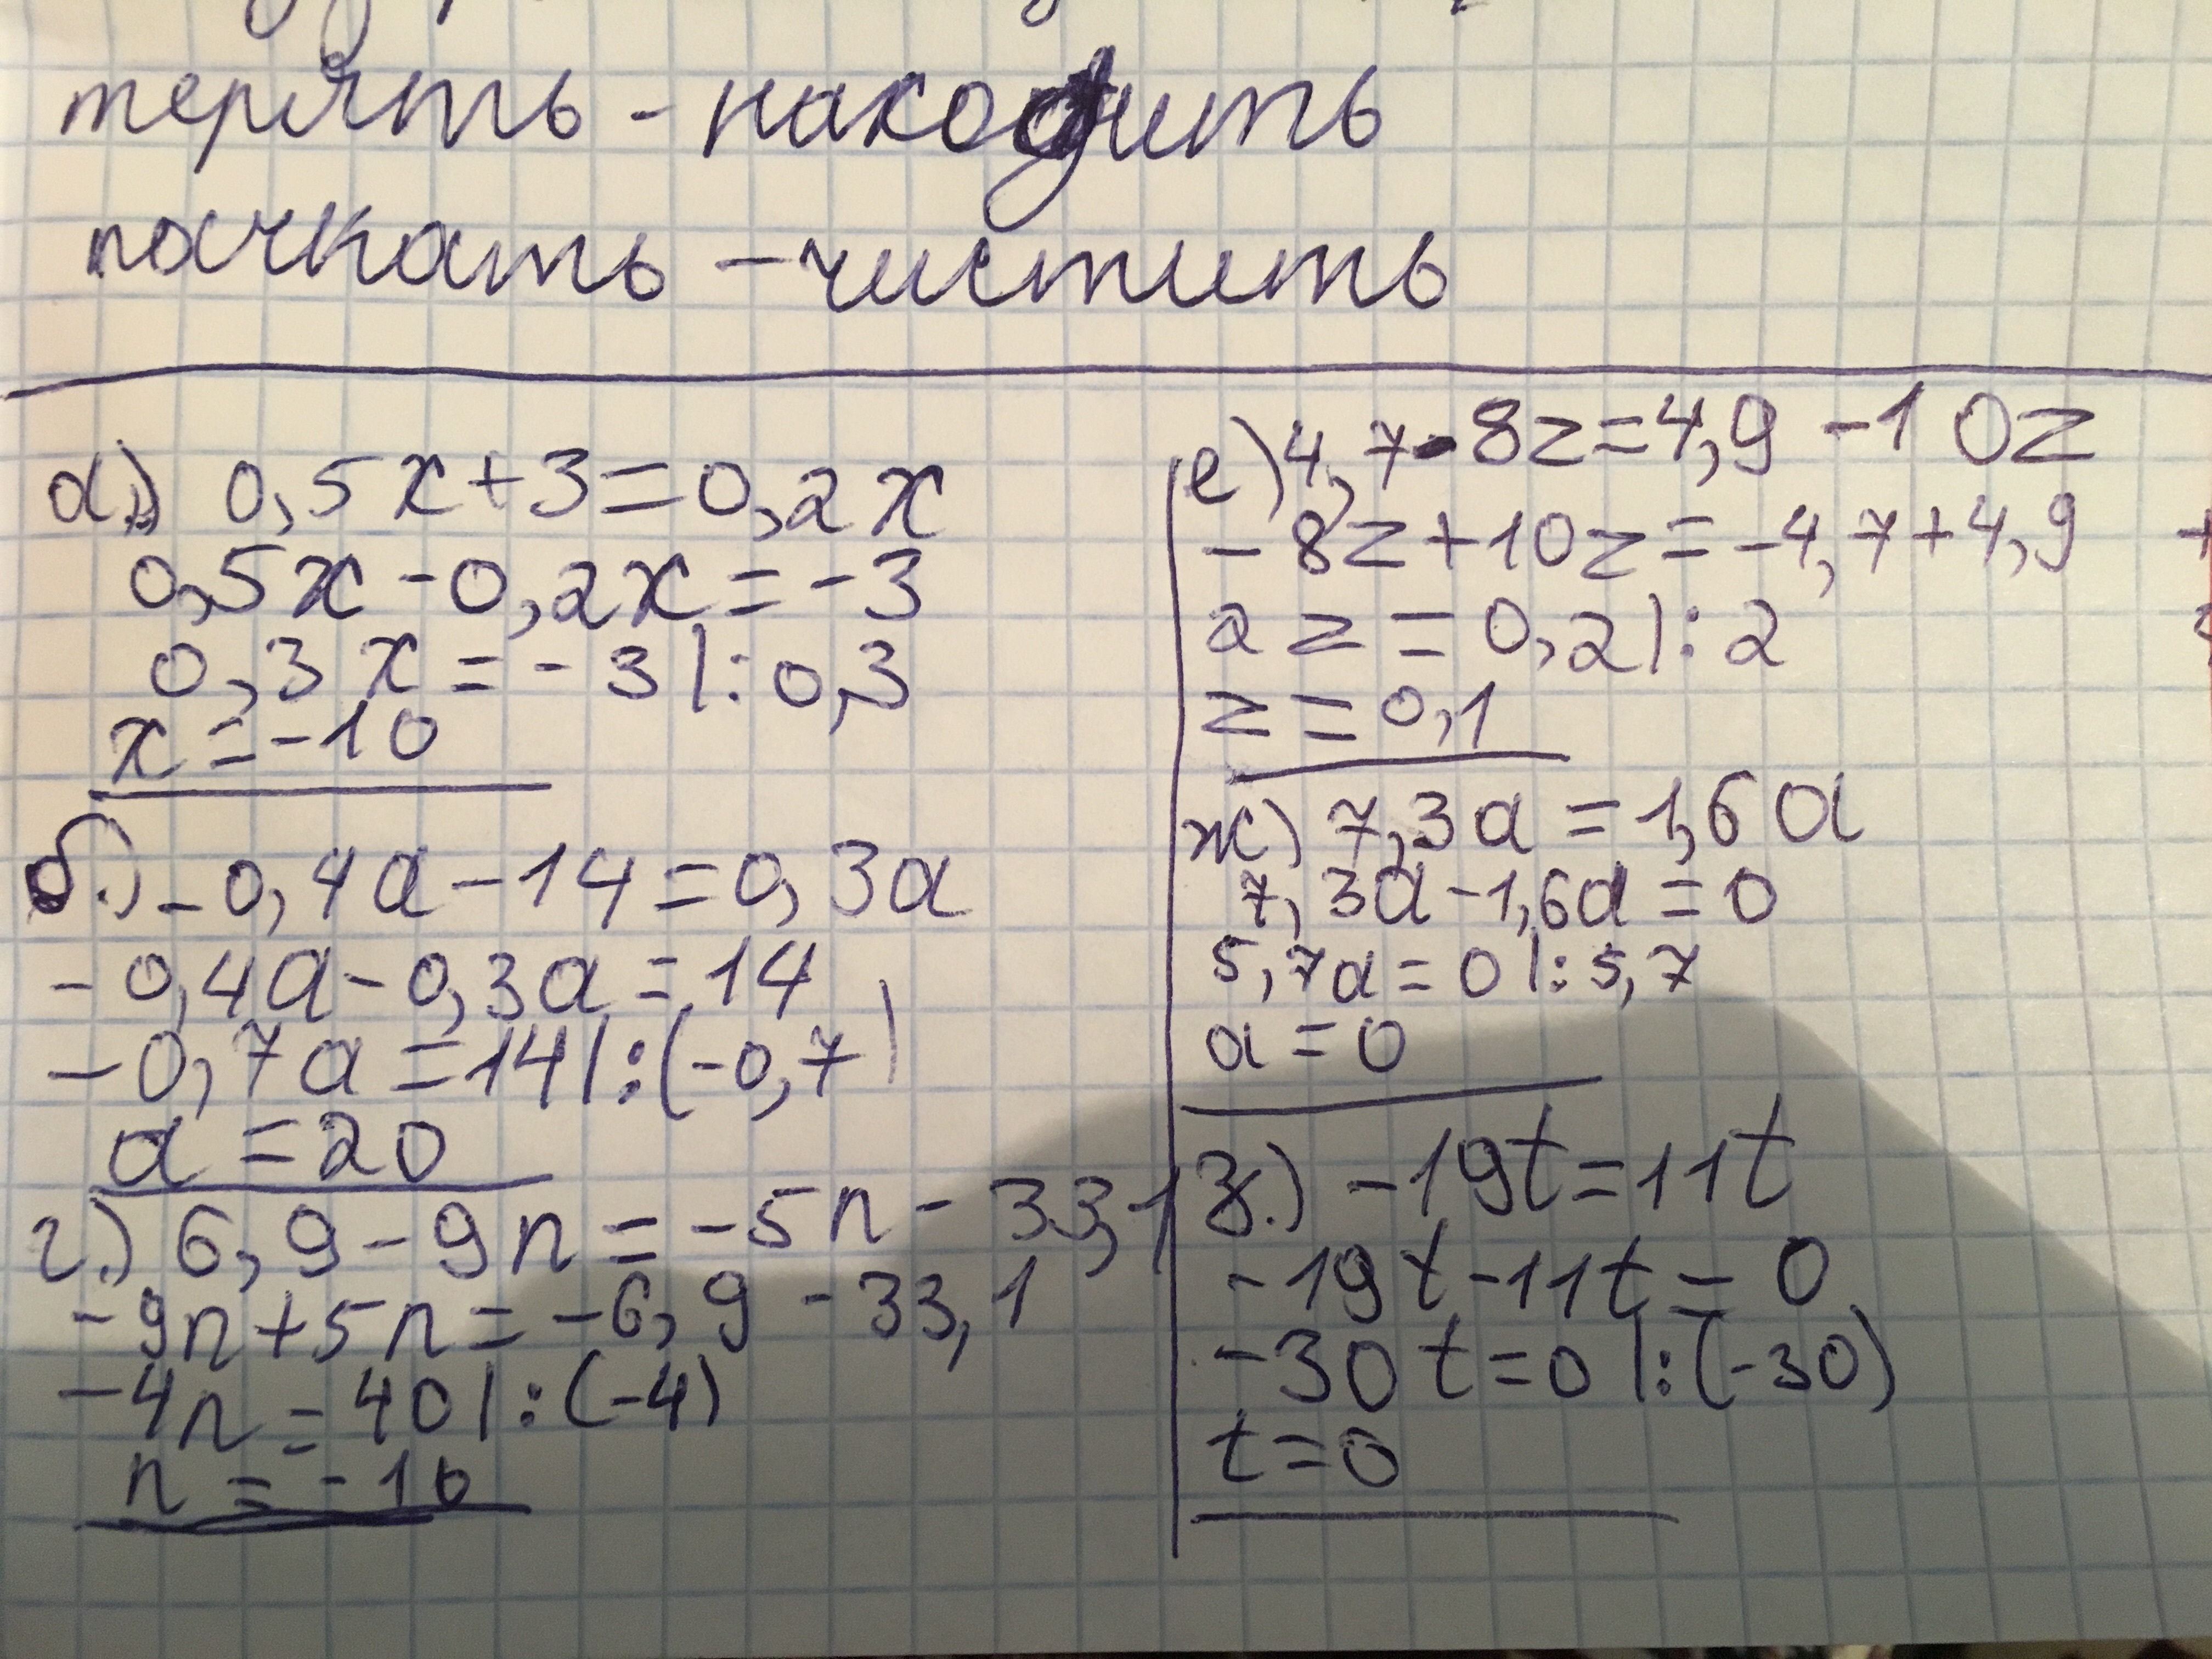 терять - находить
пачкать - чистить
а.) 0,5x+3=0,2x
0,5x-0,2x=-3
0,3x=-3|:0,3
x=-10
б.) -0,4a-14=0,3a
-0,4a-0,3a=14
-0,7a=14|:(-0,7)
a=20
г.) 6,9-9n=-5n-33,1
-9n+5n=-6,9-33,1
-4n=40|:(-4)
n=-10
е) 4,7-8z=4,9-10z
-8z+10z=-4,7+4,9
2z=0,2|:2
z=0,1
ж) 7,3a=1,6a
7,3a-1,6a=0
5,7a=0|:5,7
a=0
з.) -19t=11t
-19t-11t=0
-30t=0|:(-30)
t=0